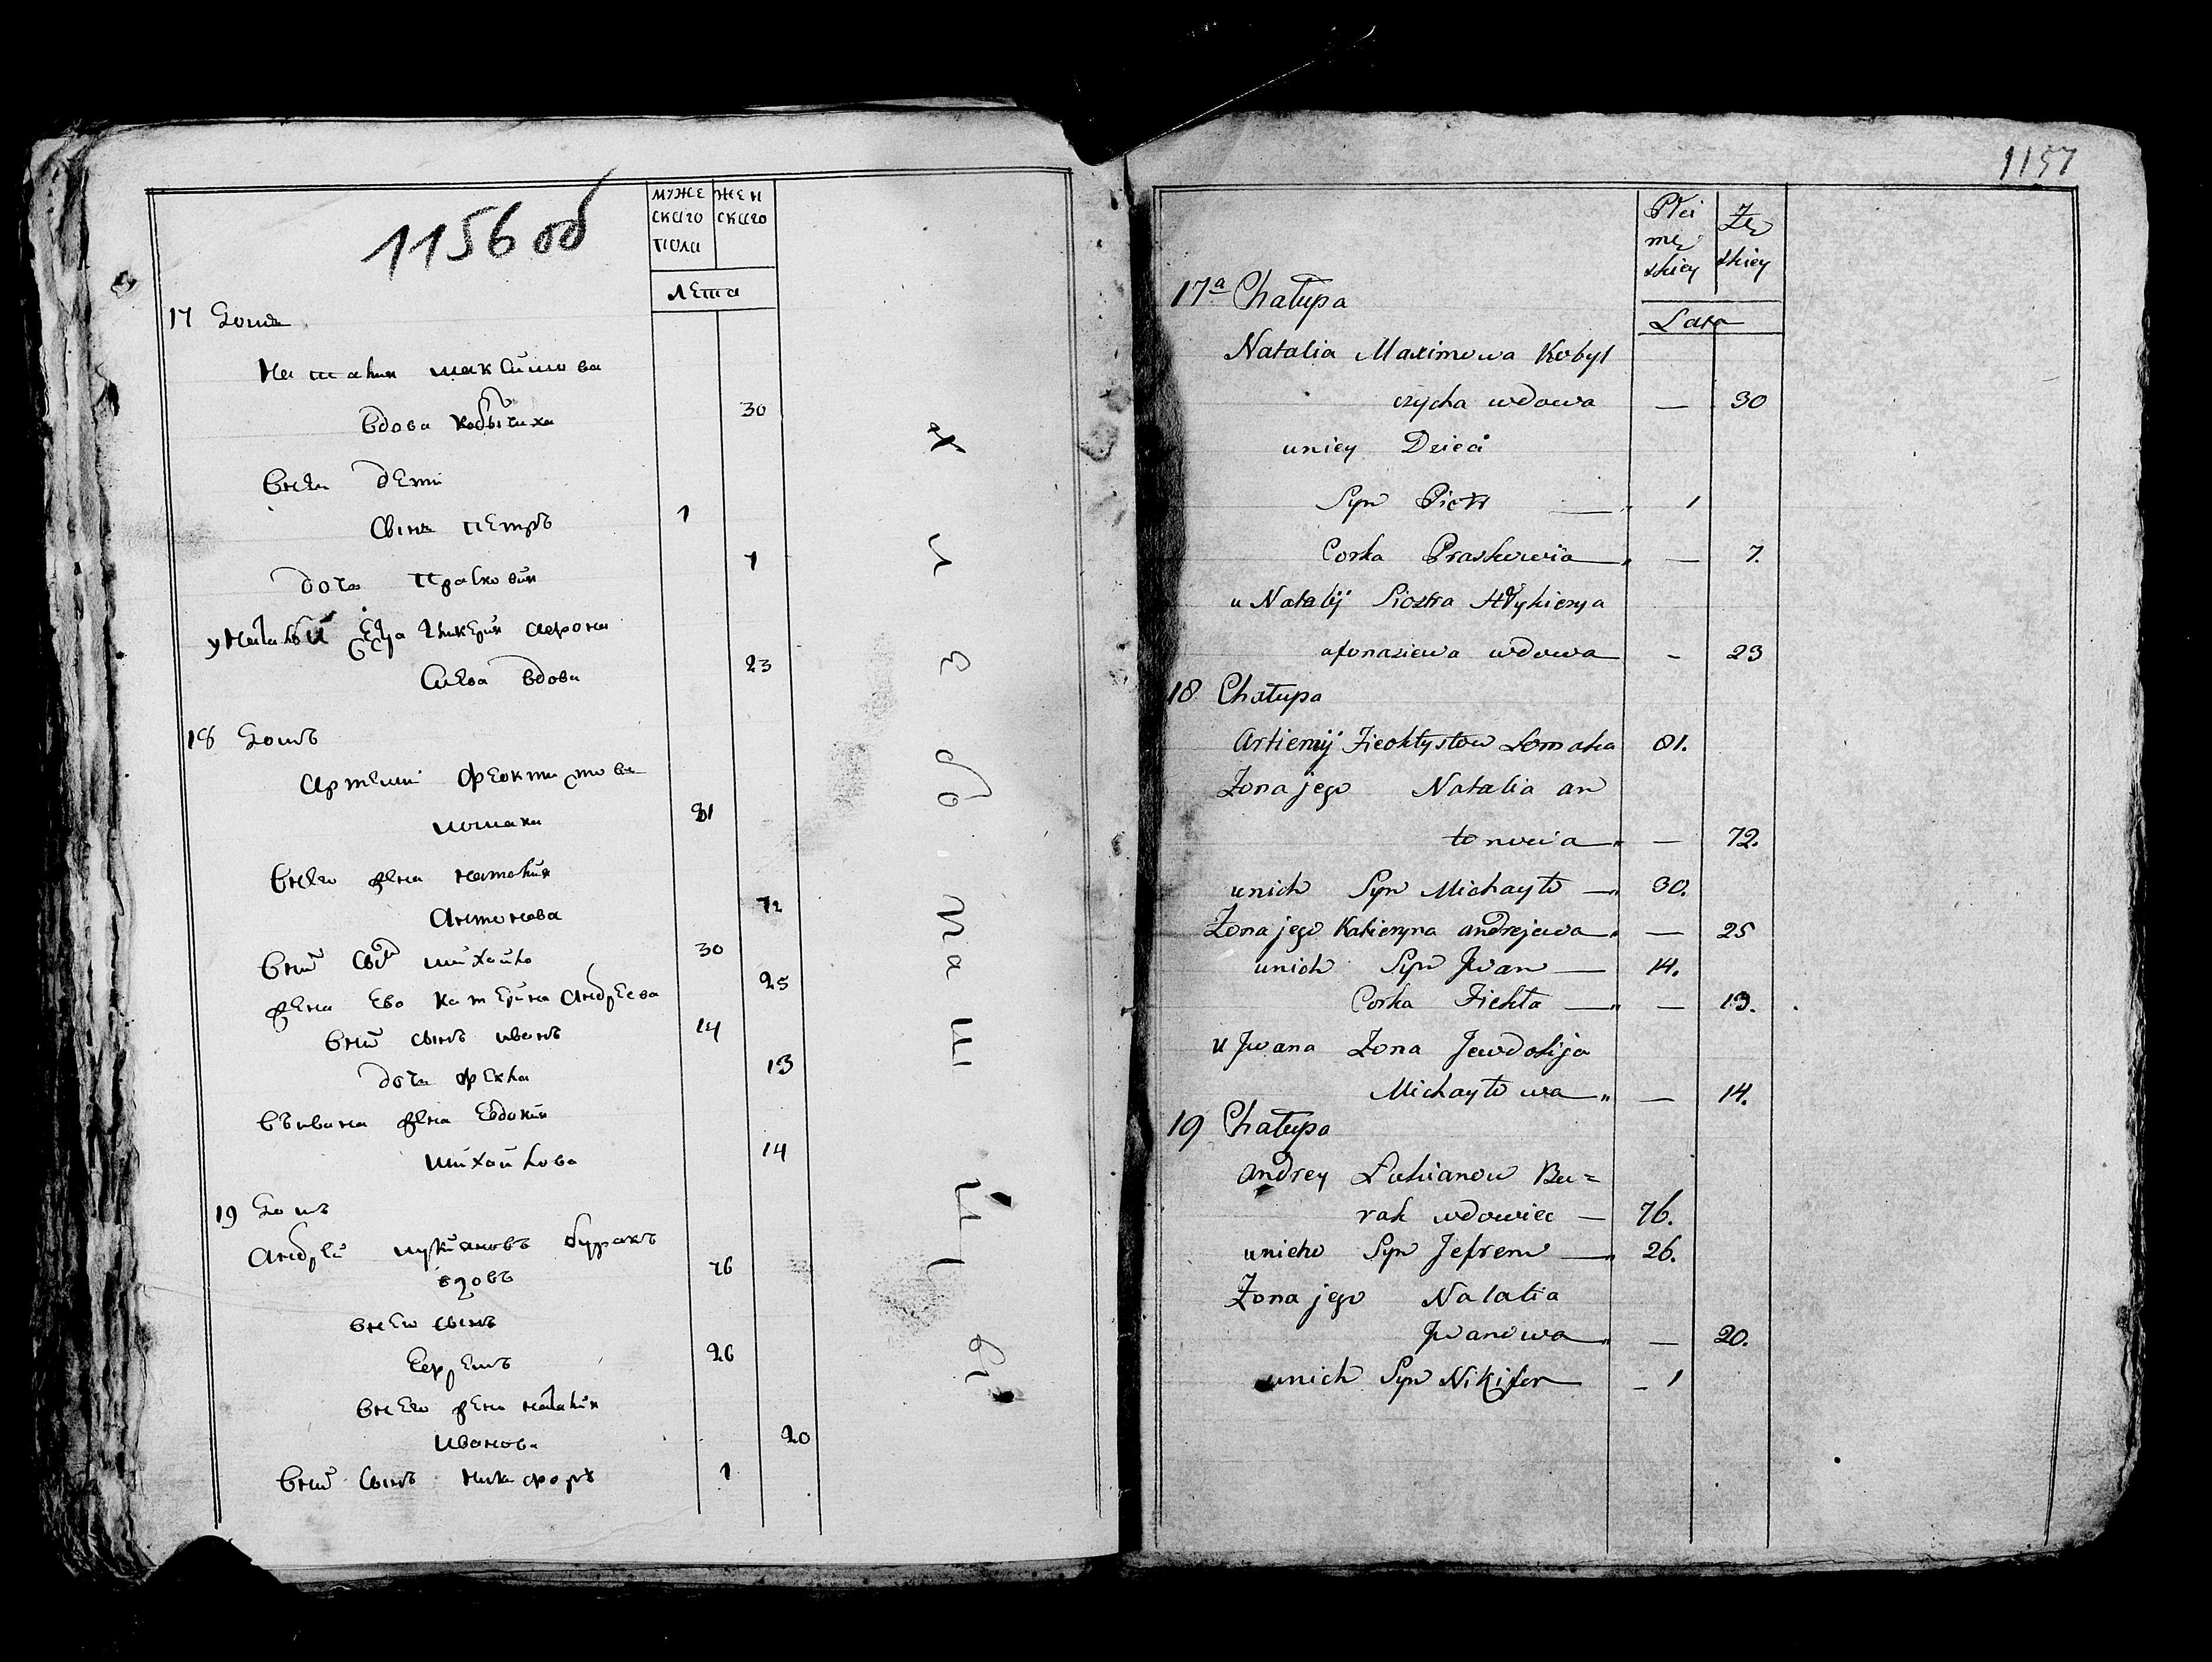 1156 об
муже
скаго
пола
жен
скаго
лета
17 Домъ
Наталия Максимова
вдова Кобылчиха 30
внея дети
Сынъ петръ 1
дочь Прасковия 7
у Наталии сестра Гликерия афона
сиева вдова 23
18 Домъ
Артеми Феоктистовъ
ломака 81
внего жена наталия
Антонова 72
вних сынъ михайло 30
жена ево катерина Андреева 25
вних сынъ иванъ 14
дочь фекла 13
въивана жена Евдокия
михайлова 14
19 Домъ
Андрей лукяновъ буракъ
вдовъ 76
внего сынъ
Ефремъ 26
внего жена наталия
Иванова 20
вних сынъ никифоръ 1
1157
Płci
mę
skiey
Żę
skiey
Lata
17a Chałupa
Natalia Maximowa Kobył
czycha wdowa — 30
uniey Dzieci
Syn Piotr — 1
Corka Praskowia — — 7.
u Natalij Siostra Hłykierya
afonasiewa wdowa - 23
18 Chałupa
Artiemij Fieoktystow Łomaka 81.
Żona jego Natalia an
tonowa — — 72.
unich Syn Michayło — 30.
Żona jego Katieryna andrejewa — 25
unich Syn Jwan — 14.
Corka Fiekła — — 13.
u Jwana Żona Jewdokija
Michayłowa „ — 14.
19 Chałupa
Andrey Łukianow Bu=
rak wdowiec — 76.
unieho Syn Jefrem — 26.
Żona jego Natalia
Jwanowa „ — 20.
unich Syn Nikifor — 1